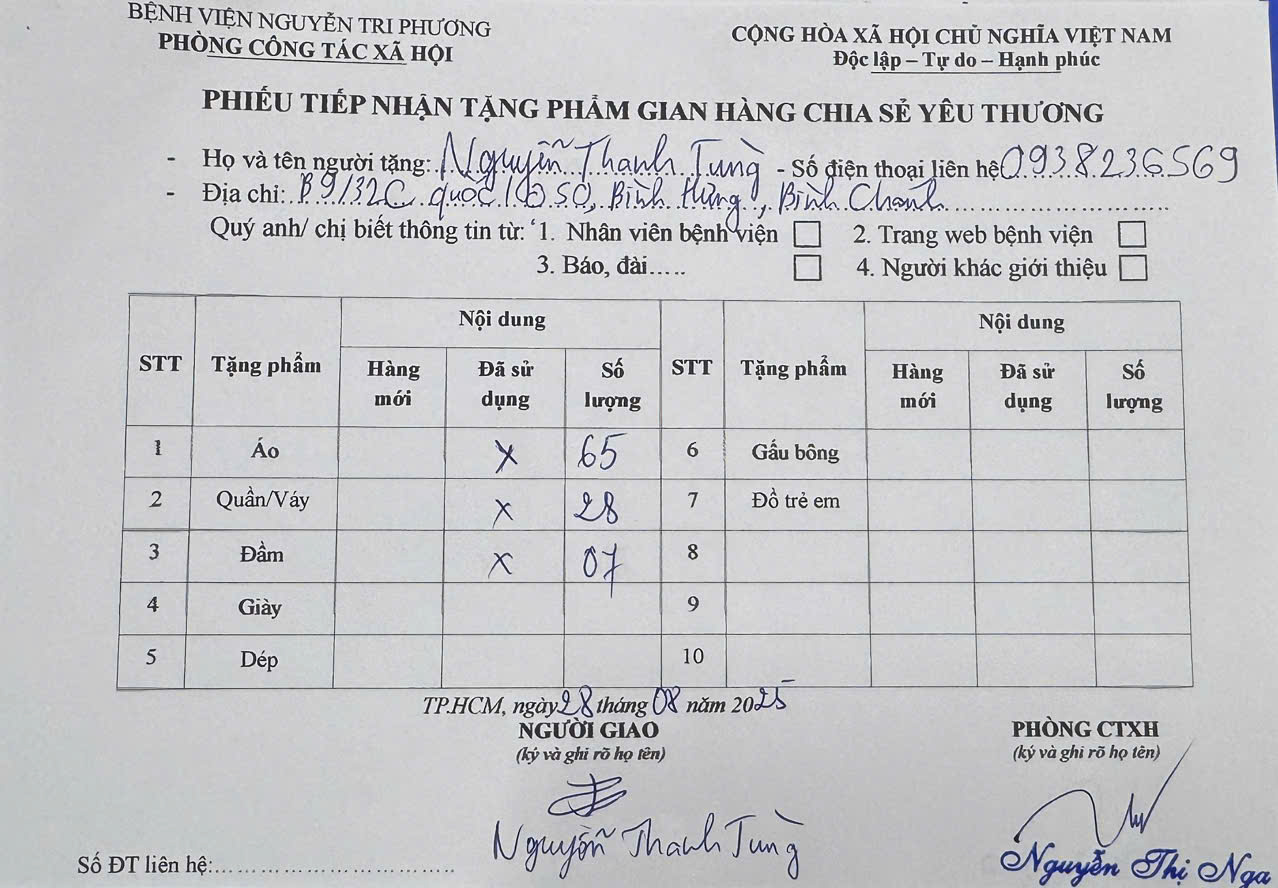 BỆNH VIỆN NGUYỄN TRI PHƯƠNG
PHÒNG CÔNG TÁC XÃ HỘI
CỘNG HÒA XÃ HỘI CHỦ NGHĨA VIỆT NAM
Độc lập – Tự do – Hạnh phúc
PHIẾU TIẾP NHẬN TẶNG PHẨM GIAN HÀNG CHIA SẺ YÊU THƯƠNG
- Họ và tên người tặng: Nguyễn Thanh Tùng - Số điện thoại liên hệ 0938236569
- Địa chỉ: B9/32C quốc lộ 50, Bình Hưng, Bình Chánh
Quý anh/ chị biết thông tin từ: 1. Nhân viên bệnh viện ☐ 2. Trang web bệnh viện ☐
3. Báo, đài..... ☐ 4. Người khác giới thiệu ☐
STT Tặng phẩm Nội dung STT Tặng phẩm Nội dung
Hàng mới Đã sử dụng Số lượng Hàng mới Đã sử dụng Số lượng
1 Áo x 65 6 Gấu bông
2 Quần/Váy x 28 7 Đồ trẻ em
3 Đầm x 07 8
4 Giày 9
5 Dép 10
TP.HCM, ngày 28 tháng 08 năm 2025
NGƯỜI GIAO
(ký và ghi rõ họ tên)
Nguyễn Thanh Tùng
PHÒNG CTXH
(ký và ghi rõ họ tên)
Nguyễn Thị Nga
Số ĐT liên hệ:....................................